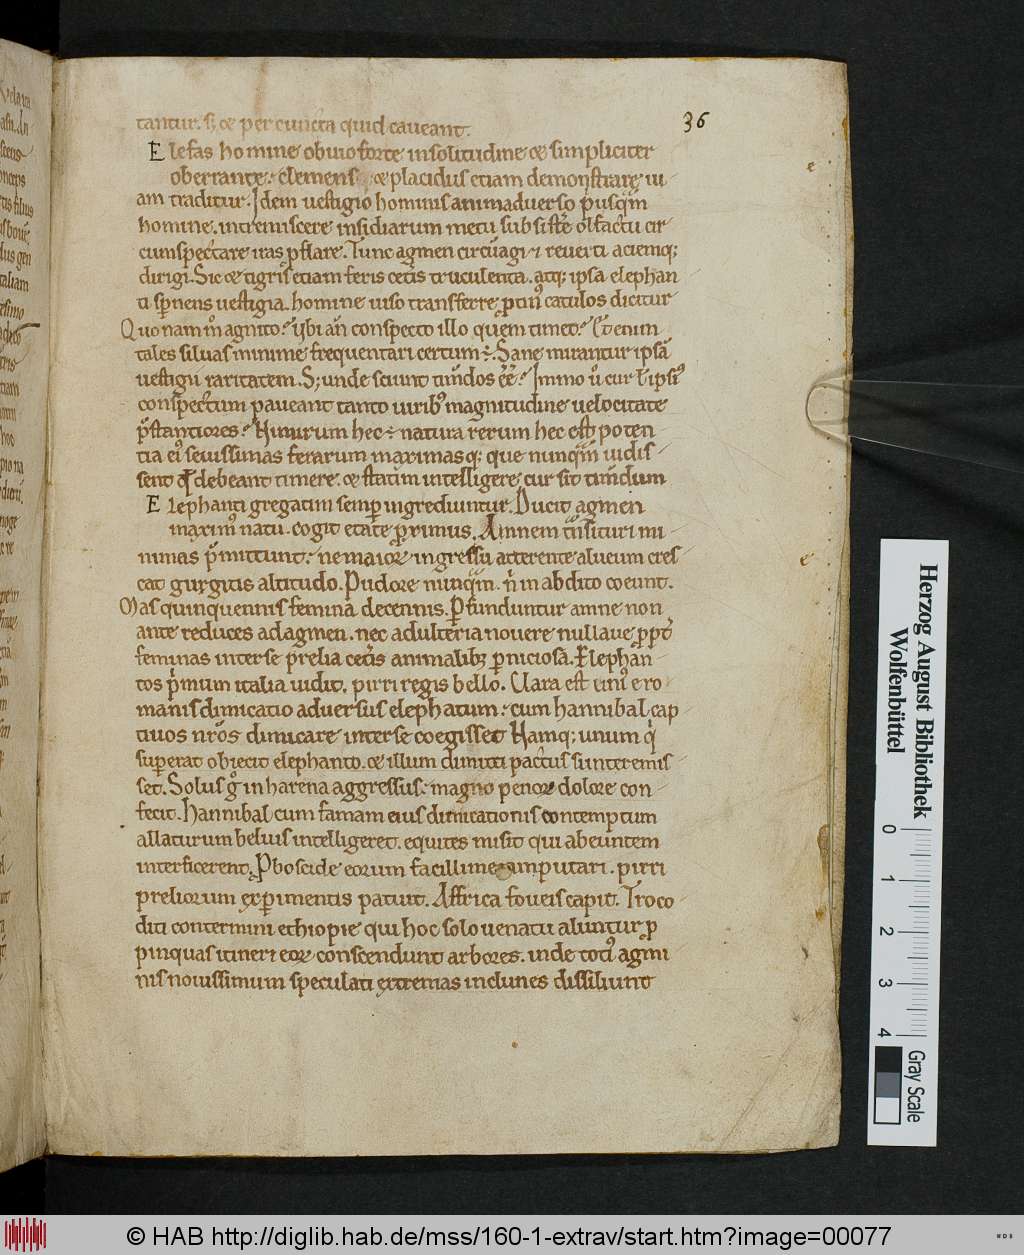 36
tantur. s; & per cuncta quid caveant.
Elefas homine obuio forte in solitudine & simpliciter
oberrante. clemens & placidus etiam demonstrare ui
am traditur. Idem uestigio hominis animaduerso p̄usq̄m
homine. intremiscere insidiarum metu subsistere olfactu cir
cumspectare iras p̄flare. Tunc agmen circūagi & reuerti aciemq;
dirigi. Sic & tigris etiam feris cet̄is truculenta. atq; ipsa elephan
ti sp̄nens uestigia. homine uiso transferre p̄tin᷒ catulos dicitur
Quonam m̄ agnito? Ubi an̄ conspecto illo quem timet? Et enim
tales siluas minime frequentari certum ÷. Sane mirantur ipsā
uestigii raritatem. S; unde sciunt tim̄dos ēē? Immo ū cur & ipsi᷒
conspectum paueant tanto uirib᷒ magnitudine uelocitate
p̄stantiores? Nimirum hec ÷ natura rerum hec est poten
tia ei᷒ seuissimas ferarum maximasq; que nunq̄m uidis
sent qd̄ debeant timere. & statim intelligere cur sit tim̄dum
Elephanti gregatim semp̄ ingrediuntur. Ducit agmen
maxim᷒ natu. cogit etate p̄rimus. Amnem tn̄situri mi
nimas p̄mittunt. ne maiore ingressu atterente alueum cres
cat gurgitis altitudo. Pudore nunq̄m. n̄ in abdito coeunt.
Mas quinquennis femina decennis. P̄funduntur amne non
ante reduces ad agmen. nec adulteria nouere nullaue p̄pt̄
feminas inter se prelia cet̄is animalib; p̄niciosa. Elephan
tos p̄mum italia uidit. pirri regis bello. Clara est uni᷒ e ro
manis dimicatio aduersus elephatum. cum hannibal cap
tiuos nr̄os dimicare inter se coegisset Namq; unum q'
sup̄erat obiecit elephanto. & illum dimitti pactus si interemis
set. Solus g̊ in harena aggressus. magno penor̄ dolore con
fecit. Hannibal cum famam eius dimicationis contemptum
allaturum beluis intelligeret. equites misit qui abeuntem
interficerent. P̄boscide eorum facillime amputari. pirri
preliorum exp̄imentis patuit. Affrica foueis capit. Troco
diti contermini ethiopie qui hoc solo uenatu aluntur p̄
pinquas itineri eor̄ conscendunt arbores. inde toti᷒ agmi
nis nouissimum speculati extremas in clunes dissiliunt
Herzog August Bibliothek
Wolfenbüttel
0 1 2 3 4
Gray Scale
© HAB http://diglib.hab.de/mss/160-1-extrav/start.htm?image=00077